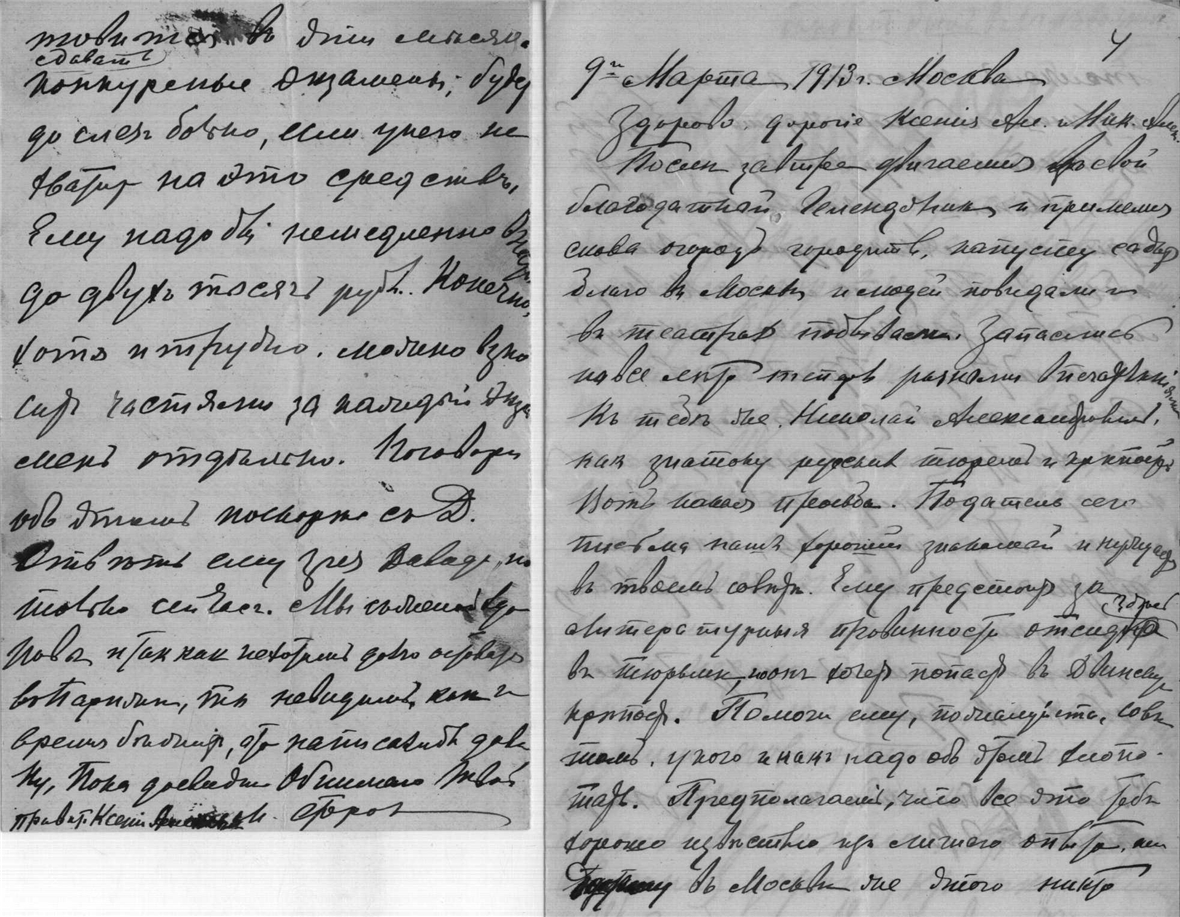 въ эти мѣсяца
сдавать
конкурсные экзамены; буду
до слезъ больно, если у него не
хватитъ на это средствъ.
Ему надо бы немедленно
до двухъ тысячъ руб. Конечно,
хотя и трудно, можно взно
сить частями за каждый экза
менъ отдѣльно. Поговори
объ этомъ поскорѣе съ Д.
Отвѣтить ему
только сейчасъ. Мы съ женой здо
ровы и такъ какъ не хотимъ долго
въ Парижѣ, то не видимъ, какъ и
время бѣжитъ, это написалъ
Пока до свиданія Обнимаю Твой
привѣт. Ксеніи
4
9го Марта 1913 г. Москва
Здорово, дорогіе Ксенія Ал. и Ник. Алек.
Послѣ завтра двигаемся въ свой
благодатный Геленджикъ и примемся
снова огородъ городить, капусту садить
благо въ Москвѣ и людей повидали и
въ театрахъ побывали. Запаслись
на все лѣто разными впечатлѣніями
Къ тебѣ же, Николай Александровичъ,
какъ знатоку русскихъ тюремъ и крѣпостей
Вотъ какая просьба. Податель сего
письма нашъ хорошій знакомый и нуждается
въ твоемъ совѣтѣ. Ему предстоитъ за
литературныя провинности отсидѣть
въ тюрьмѣ, и онъ хочетъ попасть въ Двинскую
крѣпость. Помоги ему, пожалуйста, совѣ
томъ, у кого и какъ надо объ этомъ хлопо-
тать. Предполагаемъ, что все это тебѣ
хорошо извѣстно изъ личнаго опыта,
въ Москвѣ же этого никто